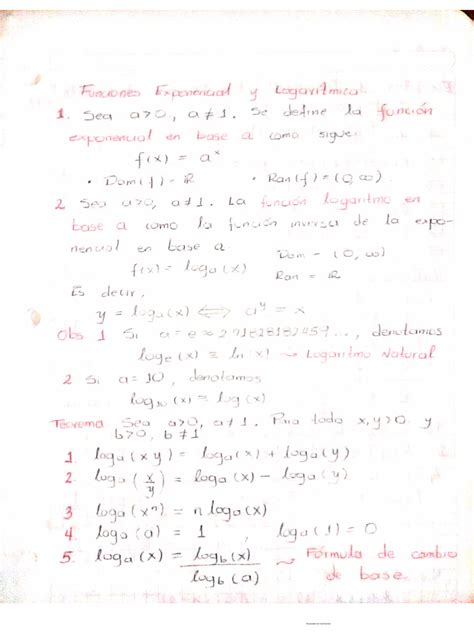 Funciones Exponencial y Logarítmica
1. Sea a>0, a≠1. Se define la función
exponencial en base a como sigue
f(x) = aˣ
• Dom(f) = ℝ • Ran(f) = (0, ∞).
2 Sea a>0, a≠1. La función logaritmo en
base a como la función inversa de la expo-
nencial en base a.
Dom - (0, ∞)
f(x) = logₐ(x)
Ran = ℝ
Es decir,
y = logₐ(x) ⟺ aʸ = x
Obs 1 Si a = e ≈ , denotamos
logₑ(x) ≡ ln(x) ⇝ Logaritmo Natural
2 Si a = 10, denotamos
log₁₀(x) = log(x)
Teorema Sea a>0, a≠1. Para todo x,y>0 y
b>0, b≠1
1. logₐ(xy) = logₐ(x) + logₐ(y)
2. logₐ(x/y) = logₐ(x) - logₐ(y)
3 logₐ(xⁿ) = n logₐ(x)
4 logₐ(a) = 1 , logₐ(1) = 0
5. logₐ(x) = log_b(x)/log_b(a) ~ Fórmula de cambio
de base.